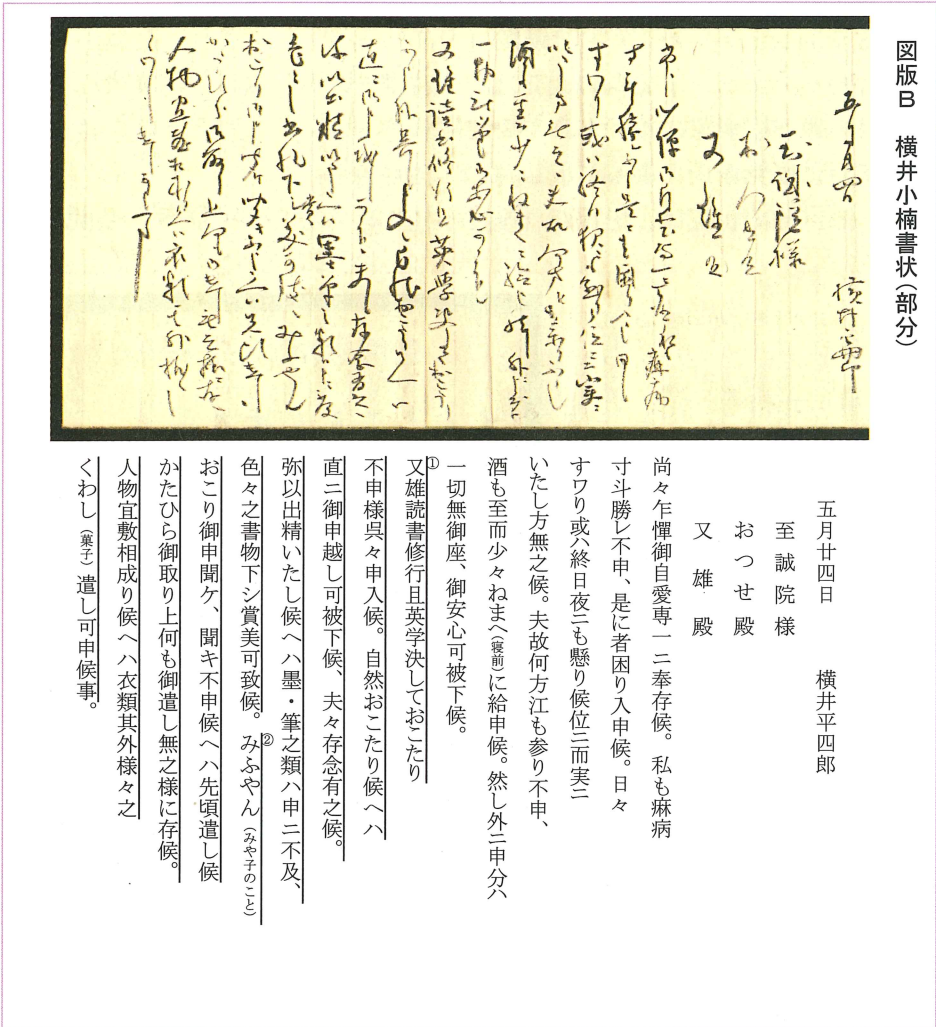 図版B　横井小楠書状（部分）
五月廿四日　　　横井平四郎
至誠院様
おつせ殿
又　雄　殿
尚々乍憚御自愛専一ニ奉存候。私も麻病
寸斗勝レ不申、是に者困り入申候。日々
すワり或ハ終日夜ニも懸り候位ニ而実ニ
いたし方無之候。夫故何方江も参り不申、
酒も至而少々ねまへ（寝前）に給申候。然し外ニ申分ハ
一切無御座、御安心可被下候。
①又雄読書修行且英学決しておこたり
不申様呉々申入候。自然おこたり候ヘハ
直ニ御申越し可被下候、夫々存念有之候。
弥以出精いたし候ヘハ墨・筆之類ハ申ニ不及、
色々之書物下シ賞美可致候。②みふやん（みや子のこと）
おこり御申聞ケ、聞キ不申候ヘハ先頃遣し候
かたひら御取り上何も御遣し無之様に存候。
人物宜敷相成り候ヘハ衣類其外様々之
くわし（菓子）遣し可申候事。